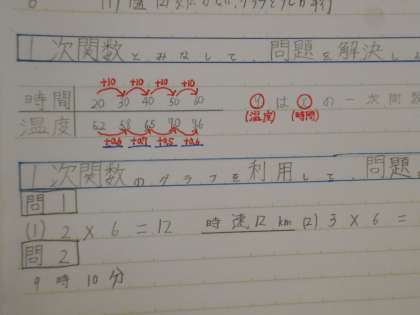 1次関数とみなして、問題を解決し
+10 +10 +10 +10
時間 20 30 40 50 60
温度 52 58 65 90 96
+0.6 +0.7 +0.5 +0.6
yはxの一次関数
(温度) (時間)
1次関数のグラフを利用して、問題
問1
(1) 2×6=12 時速12km (2) 3×6=
問2
9時10分